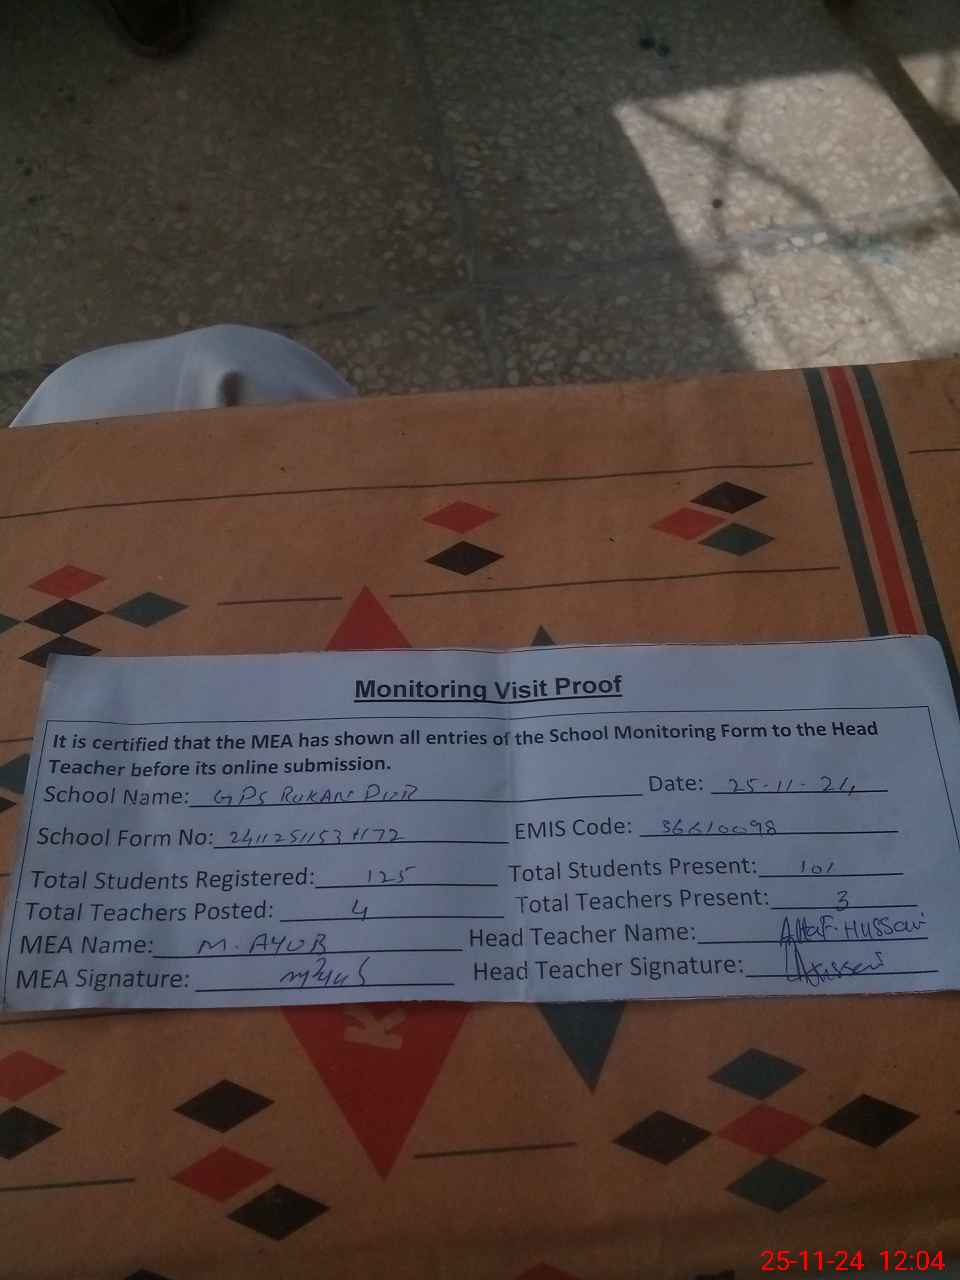 Monitoring Visit Proof
It is certified that the MEA has shown all entries of the School Monitoring Form to the Head
Teacher before its online submission.
School Name: GPS RUKAN PUR Date: 25-11-24
School Form No: EMIS Code: 36610098
Total Students Registered: 125 Total Students Present: 101
Total Teachers Posted: 4 Total Teachers Present: 3
MEA Name: M. AYUB Head Teacher Name: Altaf. Hussain
MEA Signature: Head Teacher Signature:
25-11-24 12:04